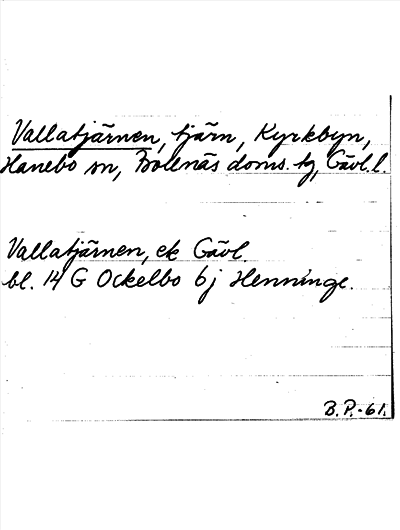 Vallatjärnen, tjärn, Kyrkbyn,
Hanebo sn, Bollnäs doms. tg, Gävl. l.
Vallatjärnen, ek Gävl.
bl. 14 G Ockelbo 6j Henninge.
B.P.-61.